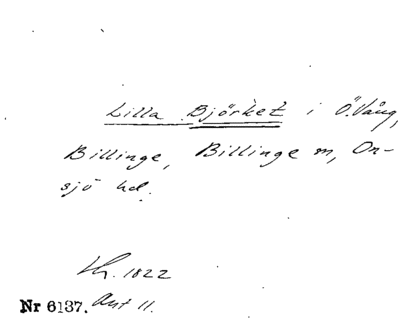 Lilla Björket i Ö. Vång,
Billinge, Billinge sn, On-
sjö hd.
Lh. 1822
Nr 6137. Akt 11.